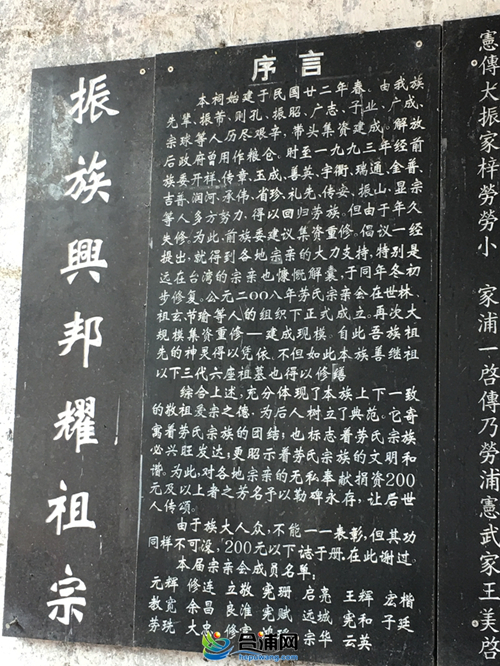 振族興邦耀祖宗
序言
本祠始建于民國廿二年春、由我族
先輩、振苦、则孔、振昭、广志、子业、广成、
宗球等人历尽艰辛,带头集资建成。解放
后政府曾用作粮仓、时至一九九三年经前
族委开祥、传章、玉成、善英、宇衢、瑞通、金普、
吉普、润河、承伟、省珍、礼先、传安、振山、显宗
等人多方努力、得以回归劳族。但由于年久
失修。为此、前族委建议集资重修。倡议一经
提出、就得到各地宗亲的大力支持,特别是
远在台湾的宗亲也慷慨解囊,于同年冬初
步修复。公元二00八年劳氏宗亲会在世林、
祖玄、节瑜等人的组织下正式成立。再次大
规模集资重修一建成现模。自此吾族祖
先的神灵得以凭依。不但如此本族善继祖
以下三代六座祖墓也得以修缮
综合上述,充分体现了本族上下一致
的敬祖爱宗之德,为后人树立了典范。它寄
寓着劳氏宗族的团结;也标志着劳氏宗族
必兴旺发达;更昭示着劳氏宗族的文明和
谐。为此,对各地宗亲的无私奉献捐资200
元及以上者之芳名予以勒碑永存,让后世
人传颂。
由于族大人众,不能一一表彰,但其功
同样不可没,200元以下誌于册。在此谢过。
本届宗亲会成员名单:
元辉 修连 立敬 宪珊 启亮 王辉 宏楷
敦宽 余昌 良淮 宪赋 远城 宪和 子延
劳珗 大忠 修 宗华 云英
憲傳大振家样勞勞小 家浦一啓傳乃勞浦憲武家王美啓
合浦网
hepuwang.com